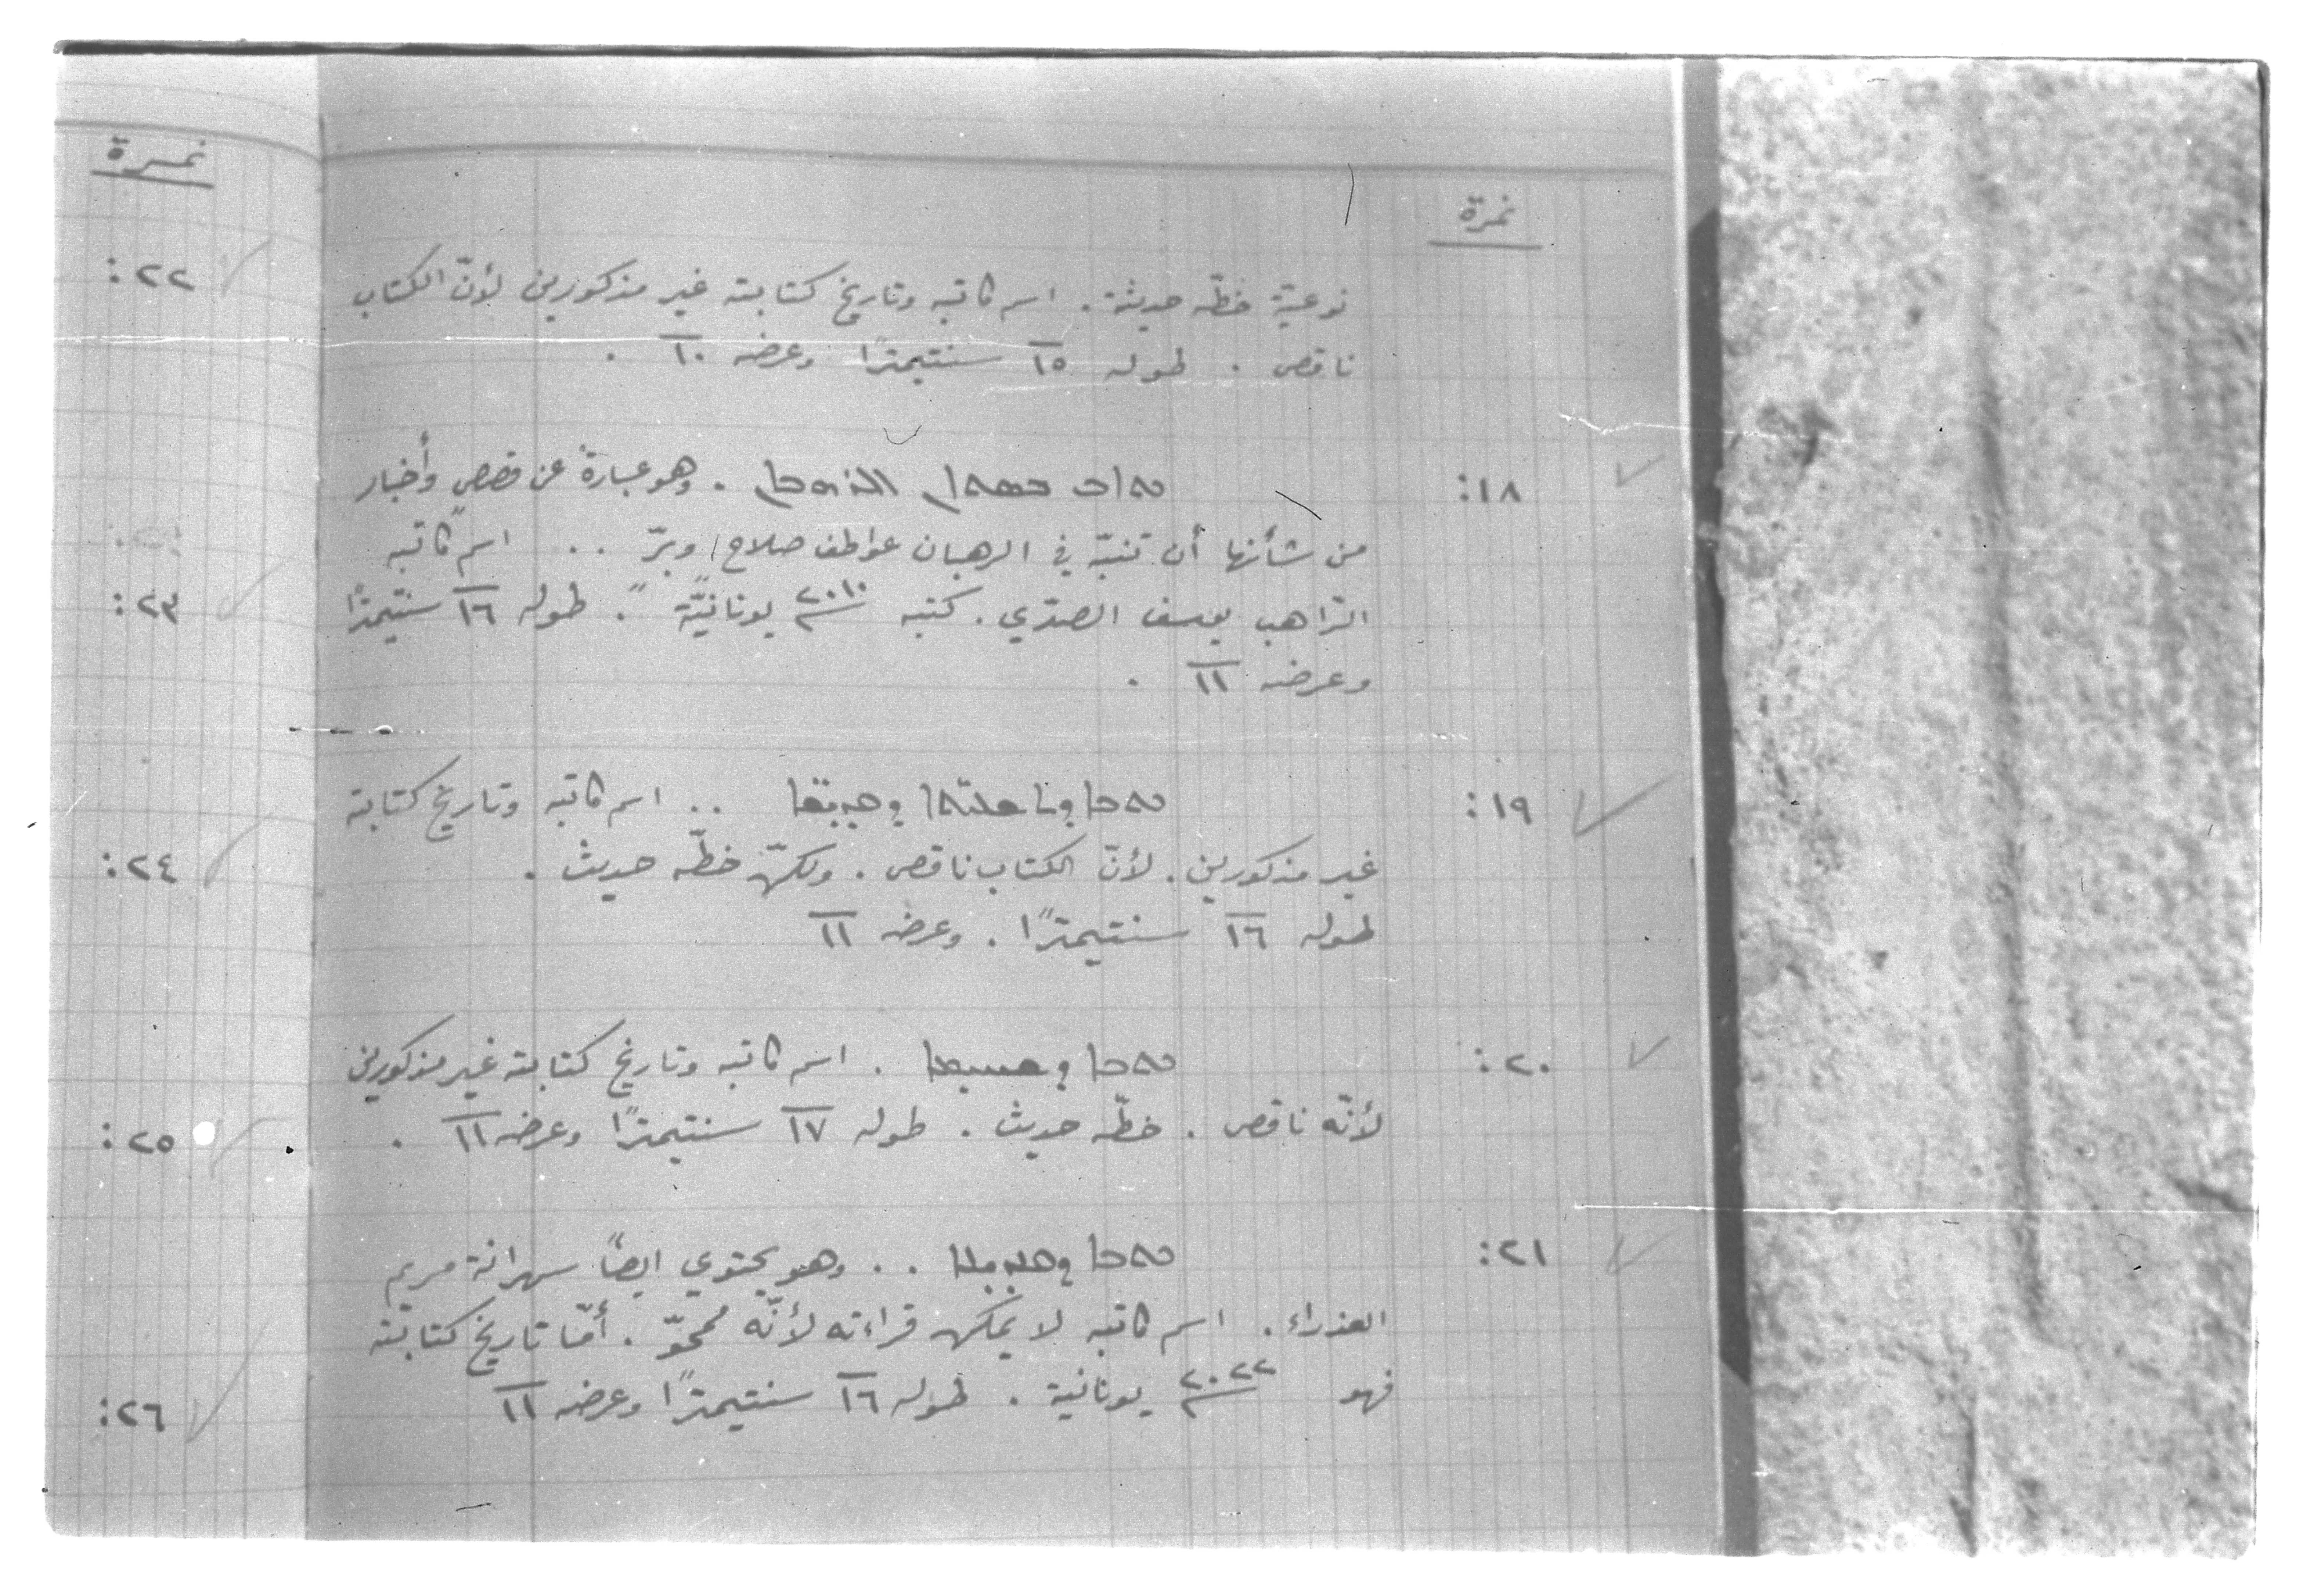 نمرة
نوعيّة خطّه حديثة . اسم كاتبه وتاريخ كتابته غير مذكورين لأنّ الكتاب
ناقص . طوله ١٥ سنتيمترًا وعرضه ١٠ .
١٨: . وهو عبارة عن قصص وأخبار
من شأنها أن تنبّه في الرهبان عواطف صلاح وبرّ .. اسم كاتبه
الرّاهب يوسف الصدّي . كتبه ٢٠١٠ يونانيّة . طوله ١٦ سنتيمترًا
وعرضه ١١ .
١٩: ܟܬܒܐ .. اسم كاتبه وتاريخ كتابته
غير مذكورين . لأنّ الكتاب ناقص . ولكنّ خطّه حديث .
طوله ١٦ سنتيمترًا . وعرضه ١١
٢٠: ܟܬܒܐ . اسم كاتبه وتاريخ كتابته غير مذكورين
لأنّه ناقص . خطّه حديث . طوله ١٧ سنتيمترًا وعرضه ١١ .
٢١: ܟܬܒܐ .. وهو يحتوي ايضًا سهرانة مريم
العذراء . اسم كاتبه لا يمكن قراءته لأنّه ممحوّ . أمّا تاريخ كتابته
فهو ٢٠٢٢ يونانية . طوله ١٦ سنتيمترًا وعرضه ١١
نمرة
٢٢:
٢٣:
٢٤:
٢٥:
٢٦: